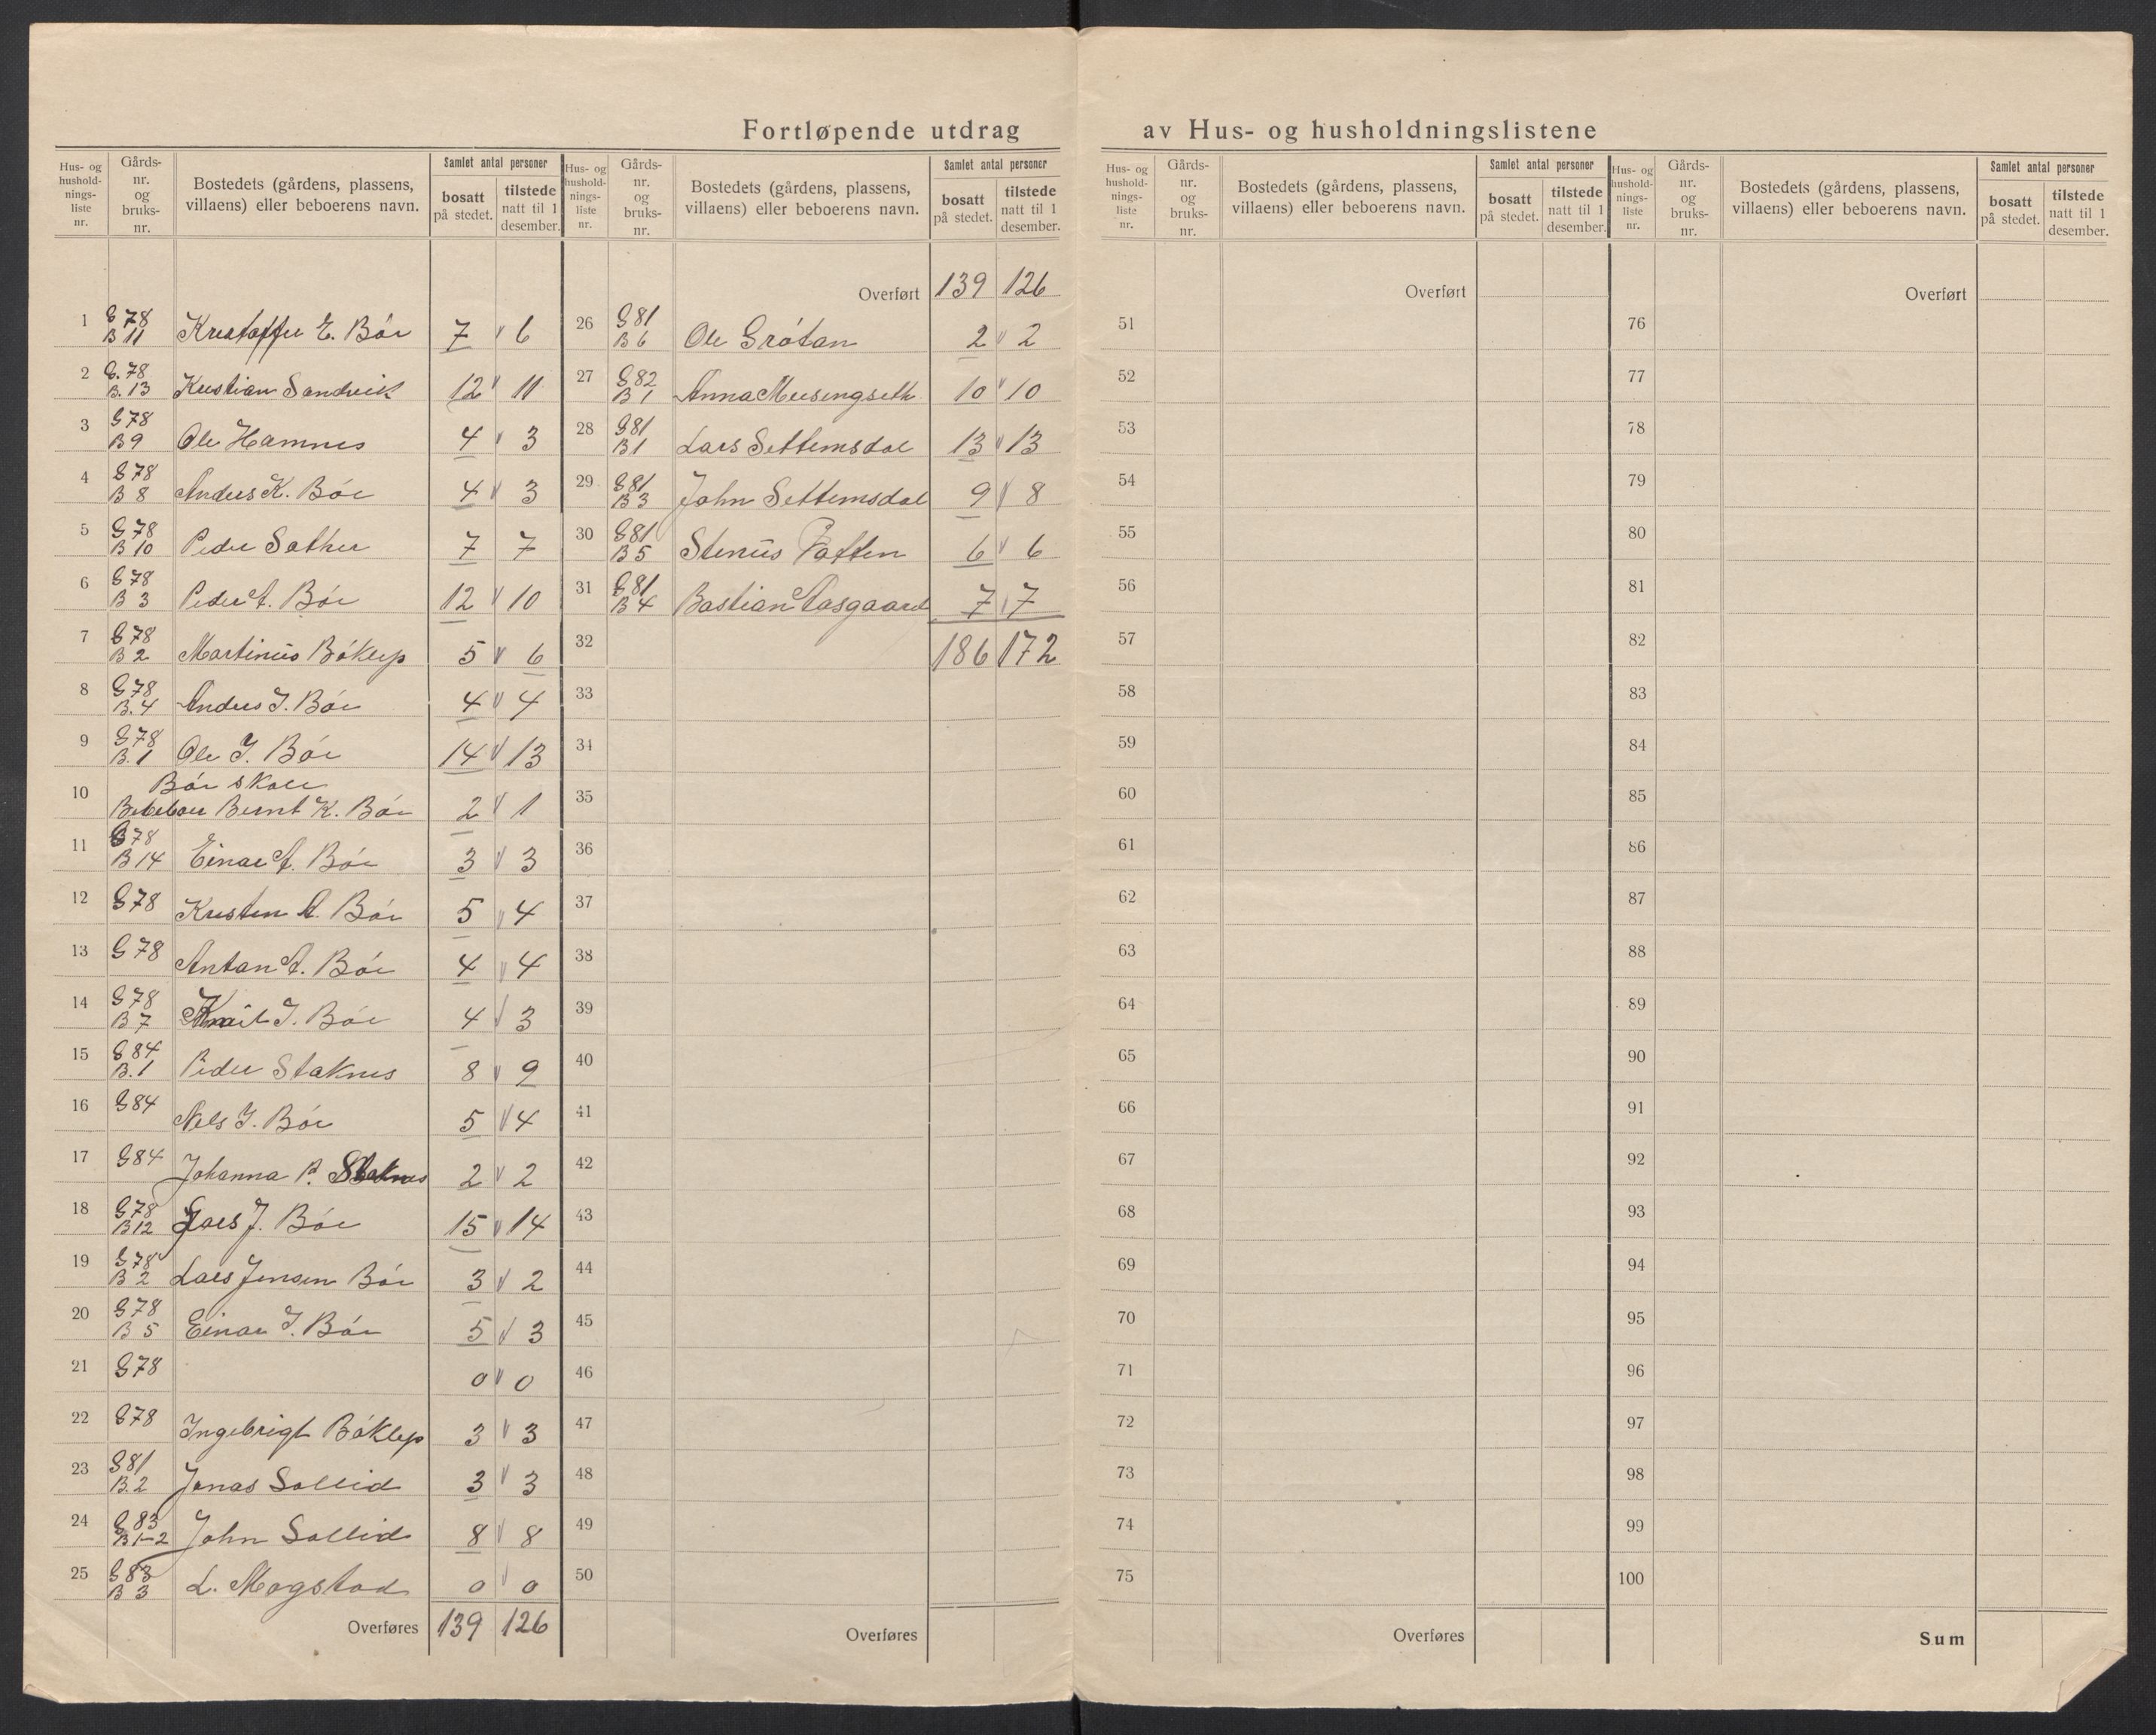 Fortløpende utdrag av Hus- og husholdningslistene
Hus- og hushold-nings-liste nr. | Gårds-nr. og bruks-nr. | Bostedets (gårdens, plassens, villaens) eller beboerens navn. | Samlet antal personer | bosatt på stedet. | tilstede natt til 1 desember.
1 G 78 B 11 Kristoffer E. Bøe 7 6
2 G. 78 B. 13 Kristian Sandvik 12 11
3 G 78 B 9 Ole Hamnes 4 3
4 G 78 B 8 Anders K. Bøe 4 3
5 G 78 B 10 Peder Sather 7 7
6 G 78 B 3 Peder A. Bøe 12 10
7 G 78 B 2 Martinus Bøklep 5 6
8 G 78 B. 4 Anders I. Bøe 4 4
9 G 78 B. 1 Ole I. Bøe 14 13
10 Bøe skole
Beboer Bernt K. Bøe 2 1
11 G 78 B 14 Einar A. Bøe 3 3
12 G 78 Kristen A. Bøe 5 4
13 G 78 Antan A. Bøe 4 4
14 G 78 B 7 I. Bøe 4 3
15 G 84 B. 1 Peder Staknes 8 9
16 G 84 Nels I. Bøe 5 4
17 G 84 Johanna P. Staknes 2 2
18 G 78 B 12 Lars J. Bøe 15 14
19 G 78 B 2 Lars Jensen Bøe 3 2
20 G 78 B 5 Einar I. Bøe 5 3
21 G 78 0 0
22 G 78 Ingebrigt Bøklep 3 3
23 G 81 B. 2 Jonas Sollid 3 3
24 G 83 B 1-2 John Sollid 8 8
25 G 83 B 3 L. Mogstad 0 0
Overføres 139 126
Hus- og hushold-nings-liste nr. | Gårds-nr. og bruks-nr. | Bostedets (gårdens, plassens, villaens) eller beboerens navn. | Samlet antal personer | bosatt på stedet. | tilstede natt til 1 desember.
Overført 139 126
26 G 81 B 6 Ole Grøtan 2 2
27 G 82 B 1 Anna Meisingseth 10 10
28 G 81 B 1 Lars Settemsdal 13 13
29 G 81 B 3 John Settemsdal 9 8
30 G 81 B 5 Stenus 6 6
31 G 81 B 4 Bastian Aasgaard 7 7
32 186 172
33
34
35
36
37
38
39
40
41
42
43
44
45
46
47
48
49
50
Overføres
Hus- og hushold-nings-liste nr. | Gårds-nr. og bruks-nr. | Bostedets (gårdens, plassens, villaens) eller beboerens navn. | Samlet antal personer | bosatt på stedet. | tilstede natt til 1 desember.
Overført
51
52
53
54
55
56
57
58
59
60
61
62
63
64
65
66
67
68
69
70
71
72
73
74
75
Overføres
Hus- og hushold-nings-liste nr. | Gårds-nr. og bruks-nr. | Bostedets (gårdens, plassens, villaens) eller beboerens navn. | Samlet antal personer | bosatt på stedet. | tilstede natt til 1 desember.
Overført
76
77
78
79
80
81
82
83
84
85
86
87
88
89
90
91
92
93
94
95
96
97
98
99
100
Sum